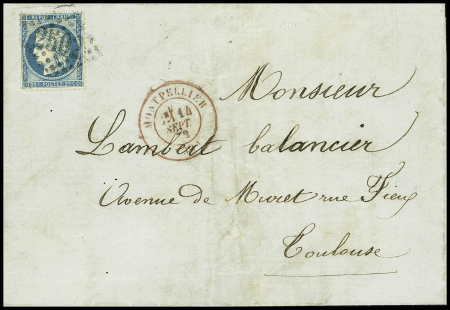 REPUB. FRANC.
25 C POSTES 25 C
MONTPELLIER
14
SEPT
Monsieur
Lambert balancier
Avenue de Muret rue Fieux
Toulouse